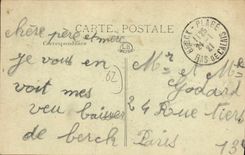 CARTE POSTALE
Correspondance
BERCK-PLAGE
PAS DE CALAIS
chère père et mère
je vous en
voit mes
baiser
de berck
62
Mr et Me
Godard
24 Rue
Paris
13